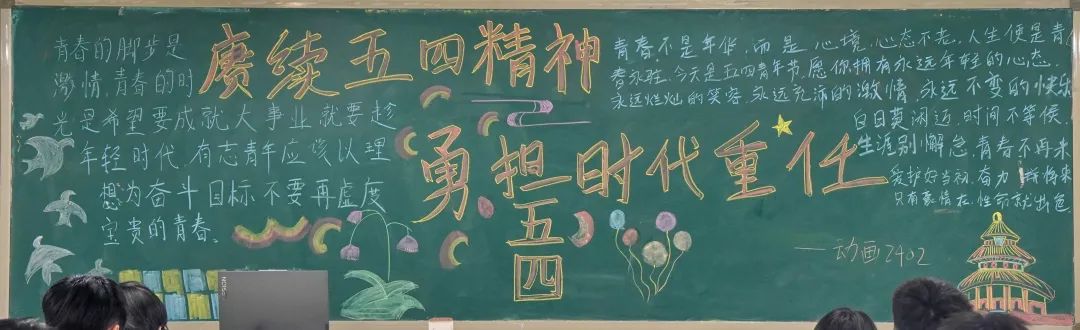 青春的脚步是
激情,青春的时
光是希望要成就大事业就要趁
年轻时代,有志青年应该以理
想为奋斗目标不要再虚度
宝贵的青春。
赓续五四精神
勇担时代重任
五
四
青春不是年华,而是心境,心态不老,人生便是青
春永驻。今天是五四青年节,愿你拥有永远年轻的心态,
永远灿烂的笑容,永远充沛的激情,永远不变的快乐
日日莫闲近,时间不等候,
生涯别懈怠,青春不再来
爱护好当初,奋力 将来
只有豪情在,性命就出色
——动画2402